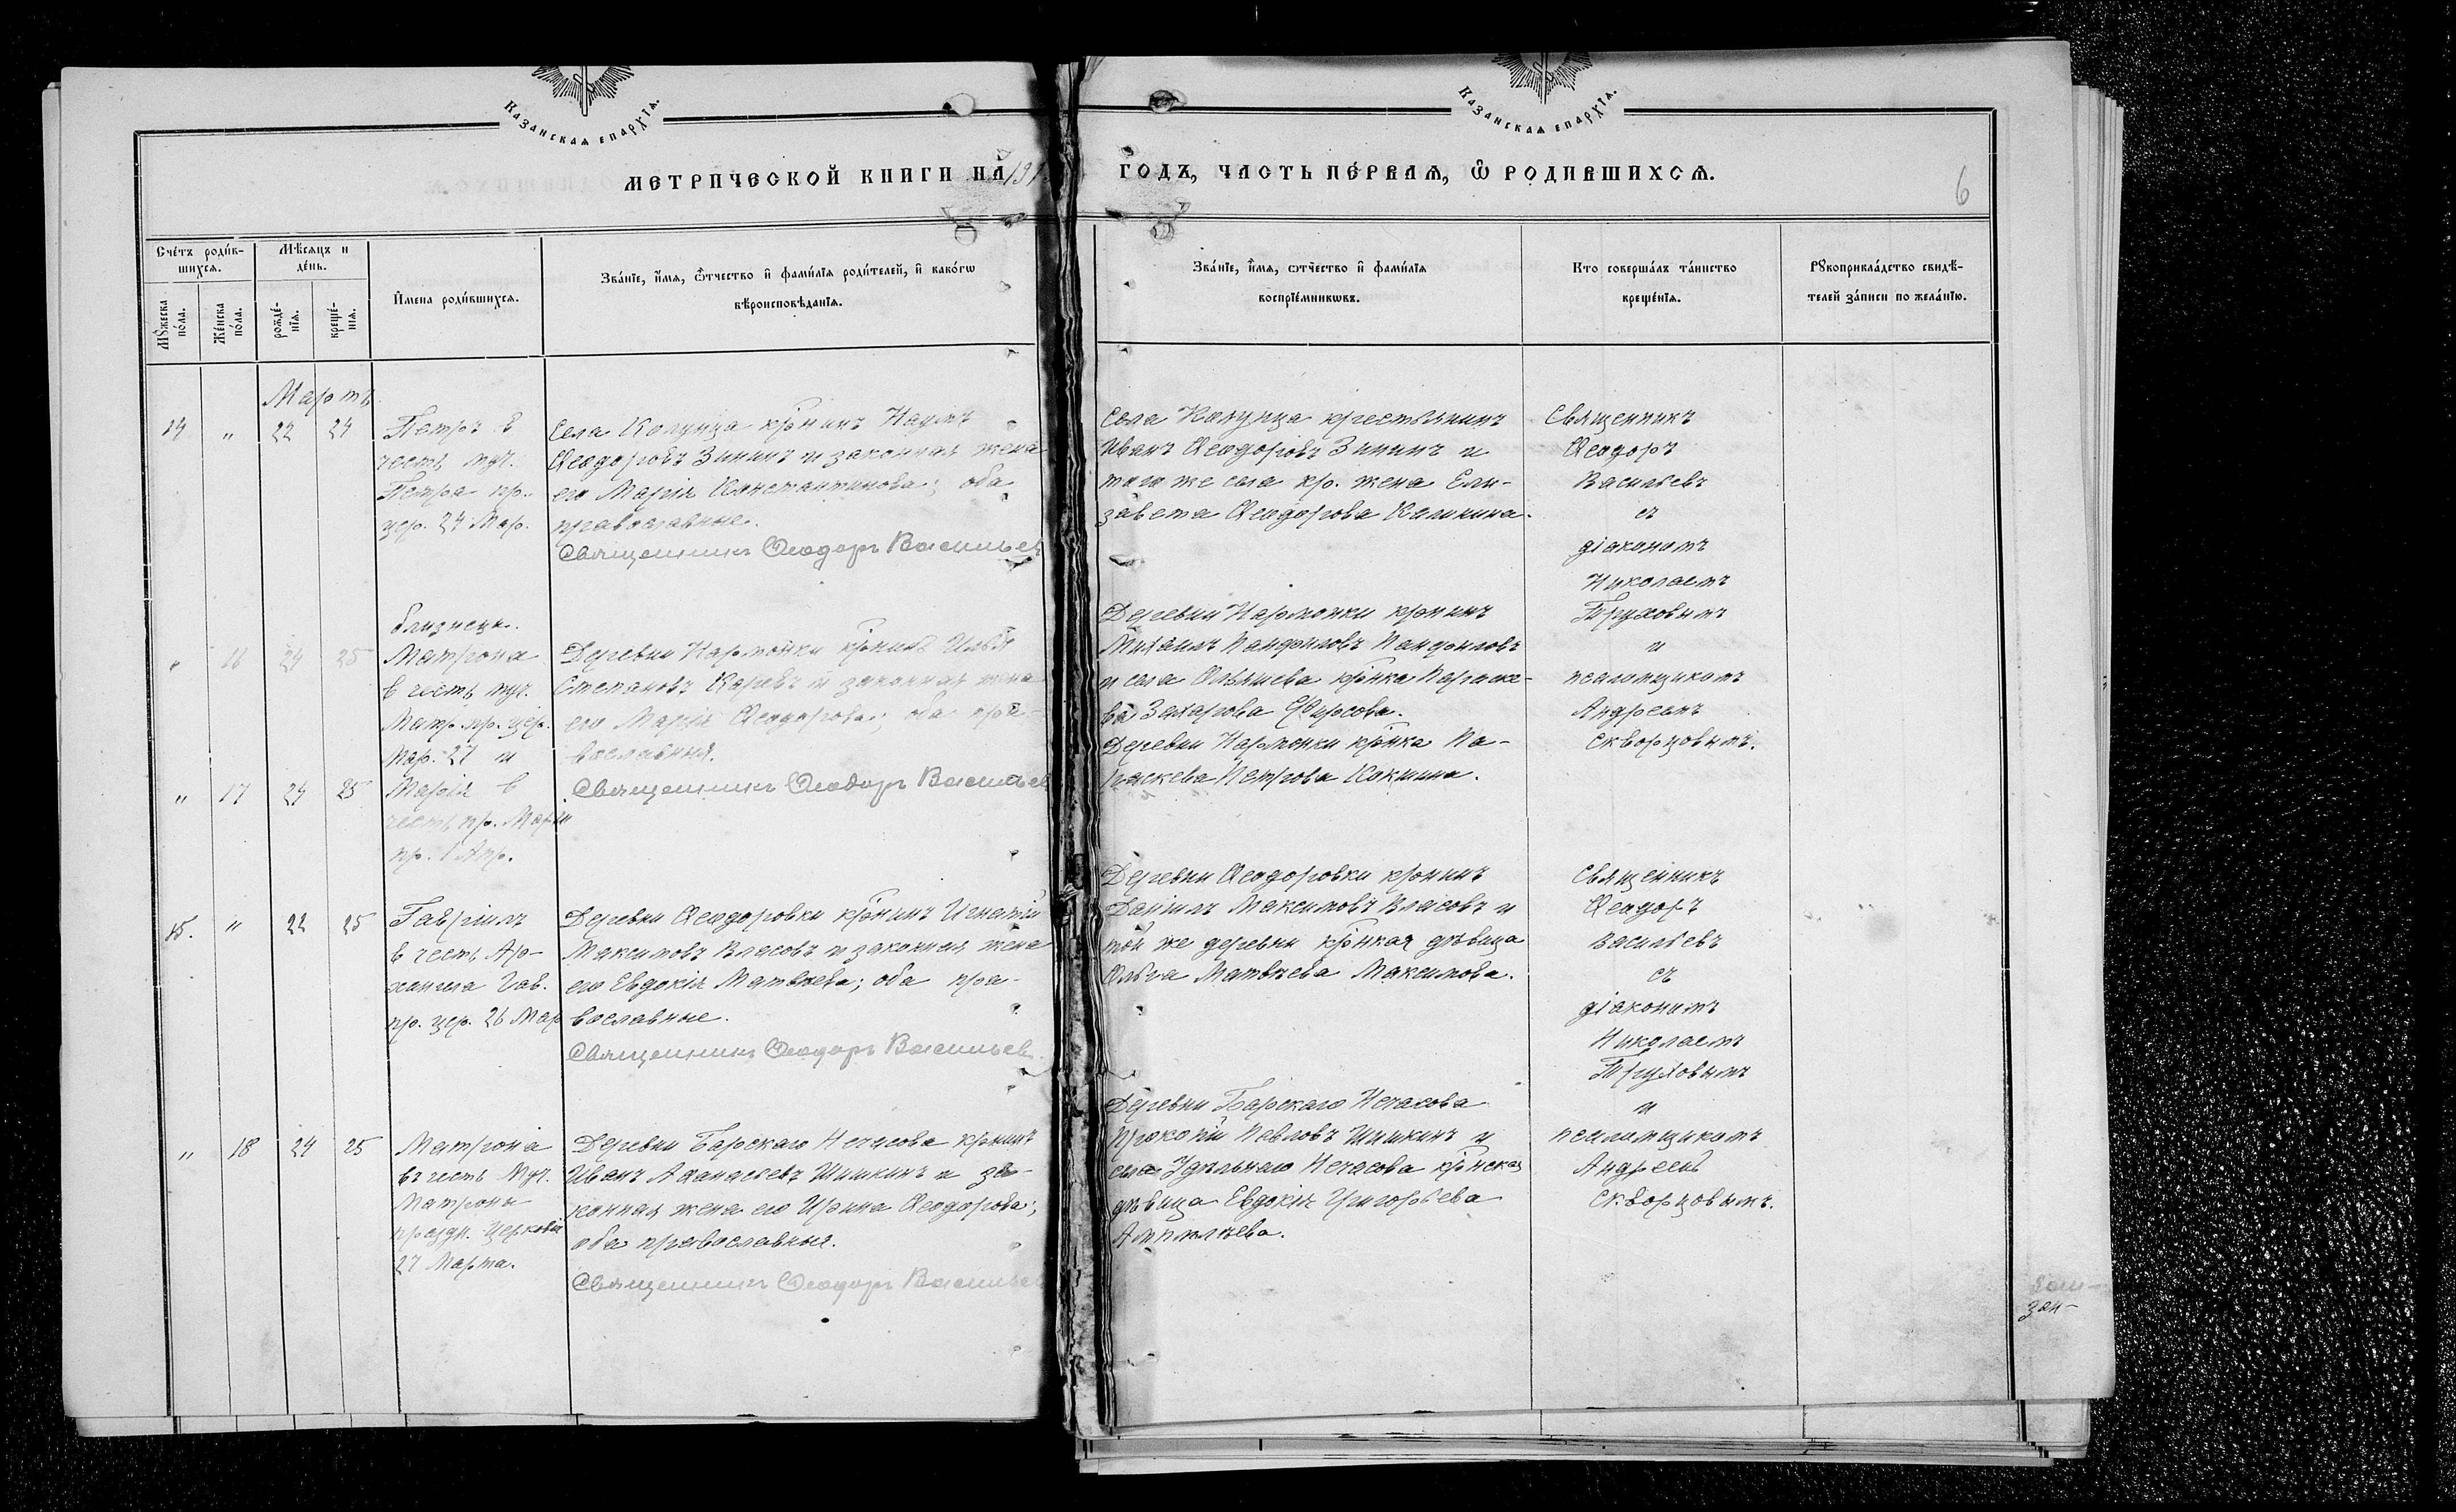 Казанская епархїѧ.
Казанская епархїѧ.
МЕТРИЧЕСКОЙ КНИГИ НА 191
ГОДЪ, ЧАСТЬ ПЕ́РВАѦ, Ѿ РОДИВШИХСѦ.
6
Сче́тъ роди́в-
шихсѧ.
Мѣ́сѧцъ и
де́нь.
Мꙋ́жеска
по́ла.
Же́нска
по́ла.
рожде́-
нїѧ.
креще́-
нїѧ.
И҆мена роди́вшихсѧ.
Зва́нїе, и҆́мѧ, ѻ҆́тчество и҆ фами́лїѧ роди́телей, и҆ како́гѡ
вѣроисповѣ́данїѧ.
Зва́нїе, и҆́мѧ, ѻ҆тчество и҆ фами́лїѧ
воспрїе́мникѡвъ.
Кто соверша́лъ та́инство
креще́нїѧ.
Рꙋкоприкла́дство свидѣ́-
телей за́писи по жела́нїю.
Мартъ
14 " 22 24
Петръ в
честь муч.
Петра пр.
цер. 24 Мар.
Села крнинъ Наумъ
Ѳеодоровъ Зининъ и законная жена
его Марія Константинова; оба
православные.
Священникъ Ѳеодоръ Васильев
Села крестьянинъ
Иванъ Ѳеодоровъ Зининъ и
того же села кр. жена Ели-
завета Ѳеодорова Калинина.
Священникъ
Ѳеодоръ
Васильевъ
съ
діакономъ
Николаемъ
Труховымъ
и
псаломщикомъ
Андреемъ
Скворцовымъ.
близнецы.
" 16 24 25
Матрона
в честь муч.
Матр. пр. цер.
Мар. 27 и
" 17 24 25
Марія в
честь пр. Маріи
пр. 1 Апр.
Деревни Нармонки крнинъ Илья
Степановъ Каревъ и законная жена
его Марія Ѳеодорова; оба пра-
вославныя.
Священникъ Ѳеодоръ Васильев
Деревни Нармонки крнинъ
Михаилъ Панфиловъ Панфиловъ
и села крнка Параске-
ва Захарова Фирсова.
Деревни Нармонки крнка Па-
раскева Петрова Кокшина.
15. " 22 25
Гавріилъ
в честь Ар-
хангела Гав.
пр. цер. 26 Мар
Деревни Ѳеодоровки крнинъ Игнатій
Максимовъ Власовъ и законная жена
его Евдокія Матвѣева; оба пра-
вославные.
Священникъ Ѳеодоръ Васильев
Деревни Ѳеодоровки крнинъ
Даніилъ Максимовъ Власовъ и
той же деревни крнкая дѣвица
Ольга Матвѣева Максимова.
Священникъ
Ѳеодоръ
Васильевъ
съ
діакономъ
Николаемъ
Труховымъ
и
псаломщикомъ
Андреемъ
Скворцовымъ.
" 18 24 25
Матрона
въ честь Муч.
Матроны
праздн. церковію
27 Марта.
Деревни Барскаго Нечасова крнинъ
Иванъ Аѳанасьевъ Шишкинъ и за-
конная жена его Ирина Ѳеодорова;
оба православныя.
Священникъ Ѳеодоръ Васильев
Деревни Барскаго Нечасова
Прокопій Павловъ Шишкинъ и
села Удѣльнаго Нечасова крнская
дѣвица Евдокія Григорьева
зап-